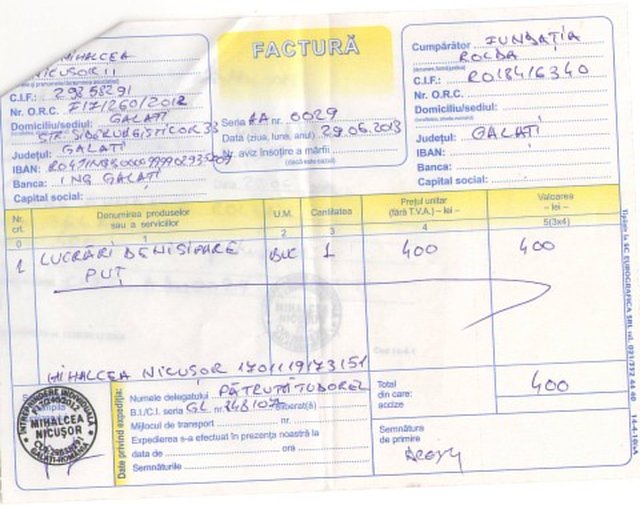 MIHALCEA
NICUSOR II
C.I.F.: 29858291
Nr. O.R.C. F17/1260/2012
Domiciliu/sediul: GALATI
STR SIDERURGISTILOR 33
Județul: GALATI
IBAN:
Banca: ING GALATI
Capital social:
FACTURĂ
Seria AA nr. 0029
Data (ziua, luna, anul) 29.06.2013
Nr. aviz însoțire a mărfii
(dacă este cazul)
Cumpărător FUNDAȚIA
ROLDA
C.I.F.: RO18416340
Nr. O.R.C.
Domiciliu/sediul:
Județul: GALATI
IBAN:
Banca:
Capital social:
Nr. crt. Denumirea produselor sau a serviciilor U.M. Cantitatea Prețul unitar (fără T.V.A.) - lei - Valoarea - lei -
0 1 2 3 4 5(3x4)
1 LUCRĂRI DENISIPARE BUC 1 400 400
PUȚ
MIHALCEA NICUȘOR 1701119173151
ÎNTREPRINDERE INDIVIDUALĂ
MIHALCEA
NICUSOR
GALATI-ROMANIA
Date privind expediția:
Numele delegatului PĂTRUTI TUDOREL
B.I./C.I. seria GL nr. eliberat(ă)
Mijlocul de transport nr.
Expedierea s-a efectuat în prezența noastră la
data de ora
Semnăturile
Total
din care:
accize
400
Semnătura
de primire
Tipărit la SC EUROGRAFICA SRL tel. 021/332 64 40 14-4-10/tA